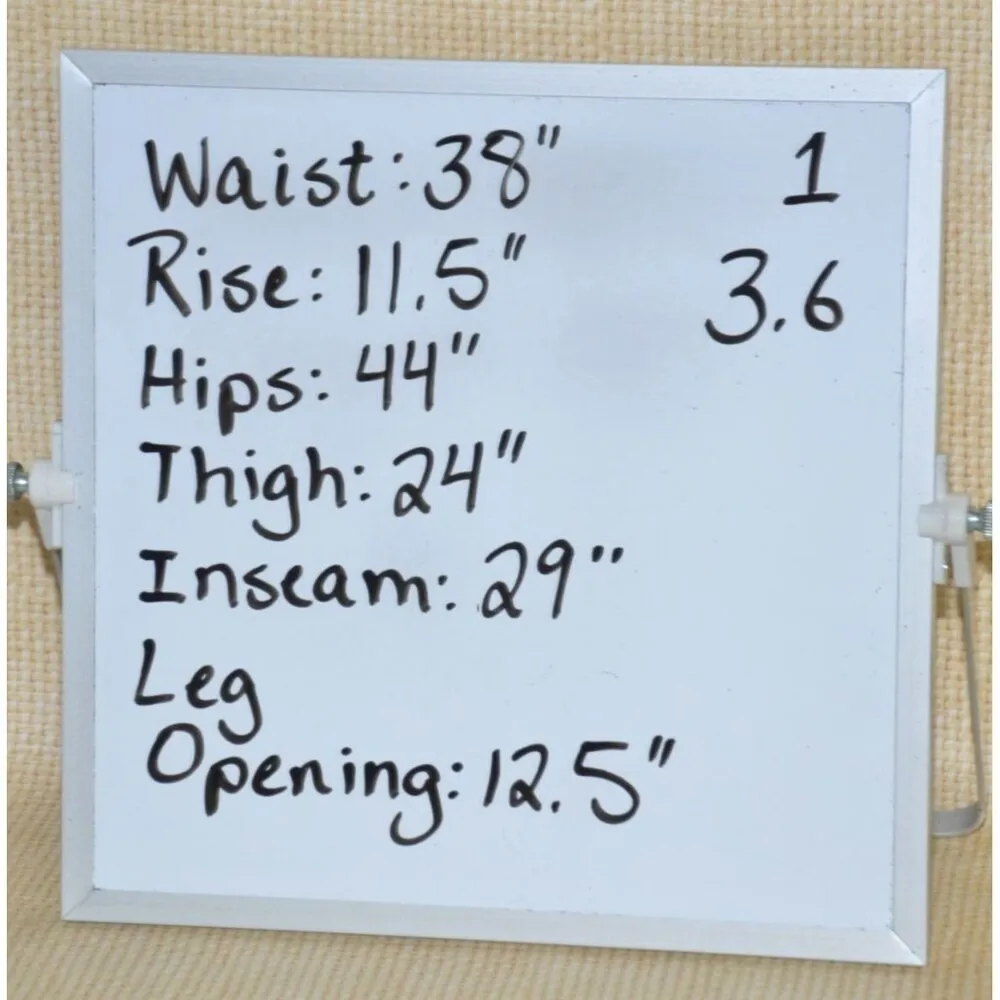 Waist: 38" 1
Rise: 11.5" 3.6
Hips: 44"
Thigh: 24"
Inseam: 29"
Leg
Opening: 12.5"